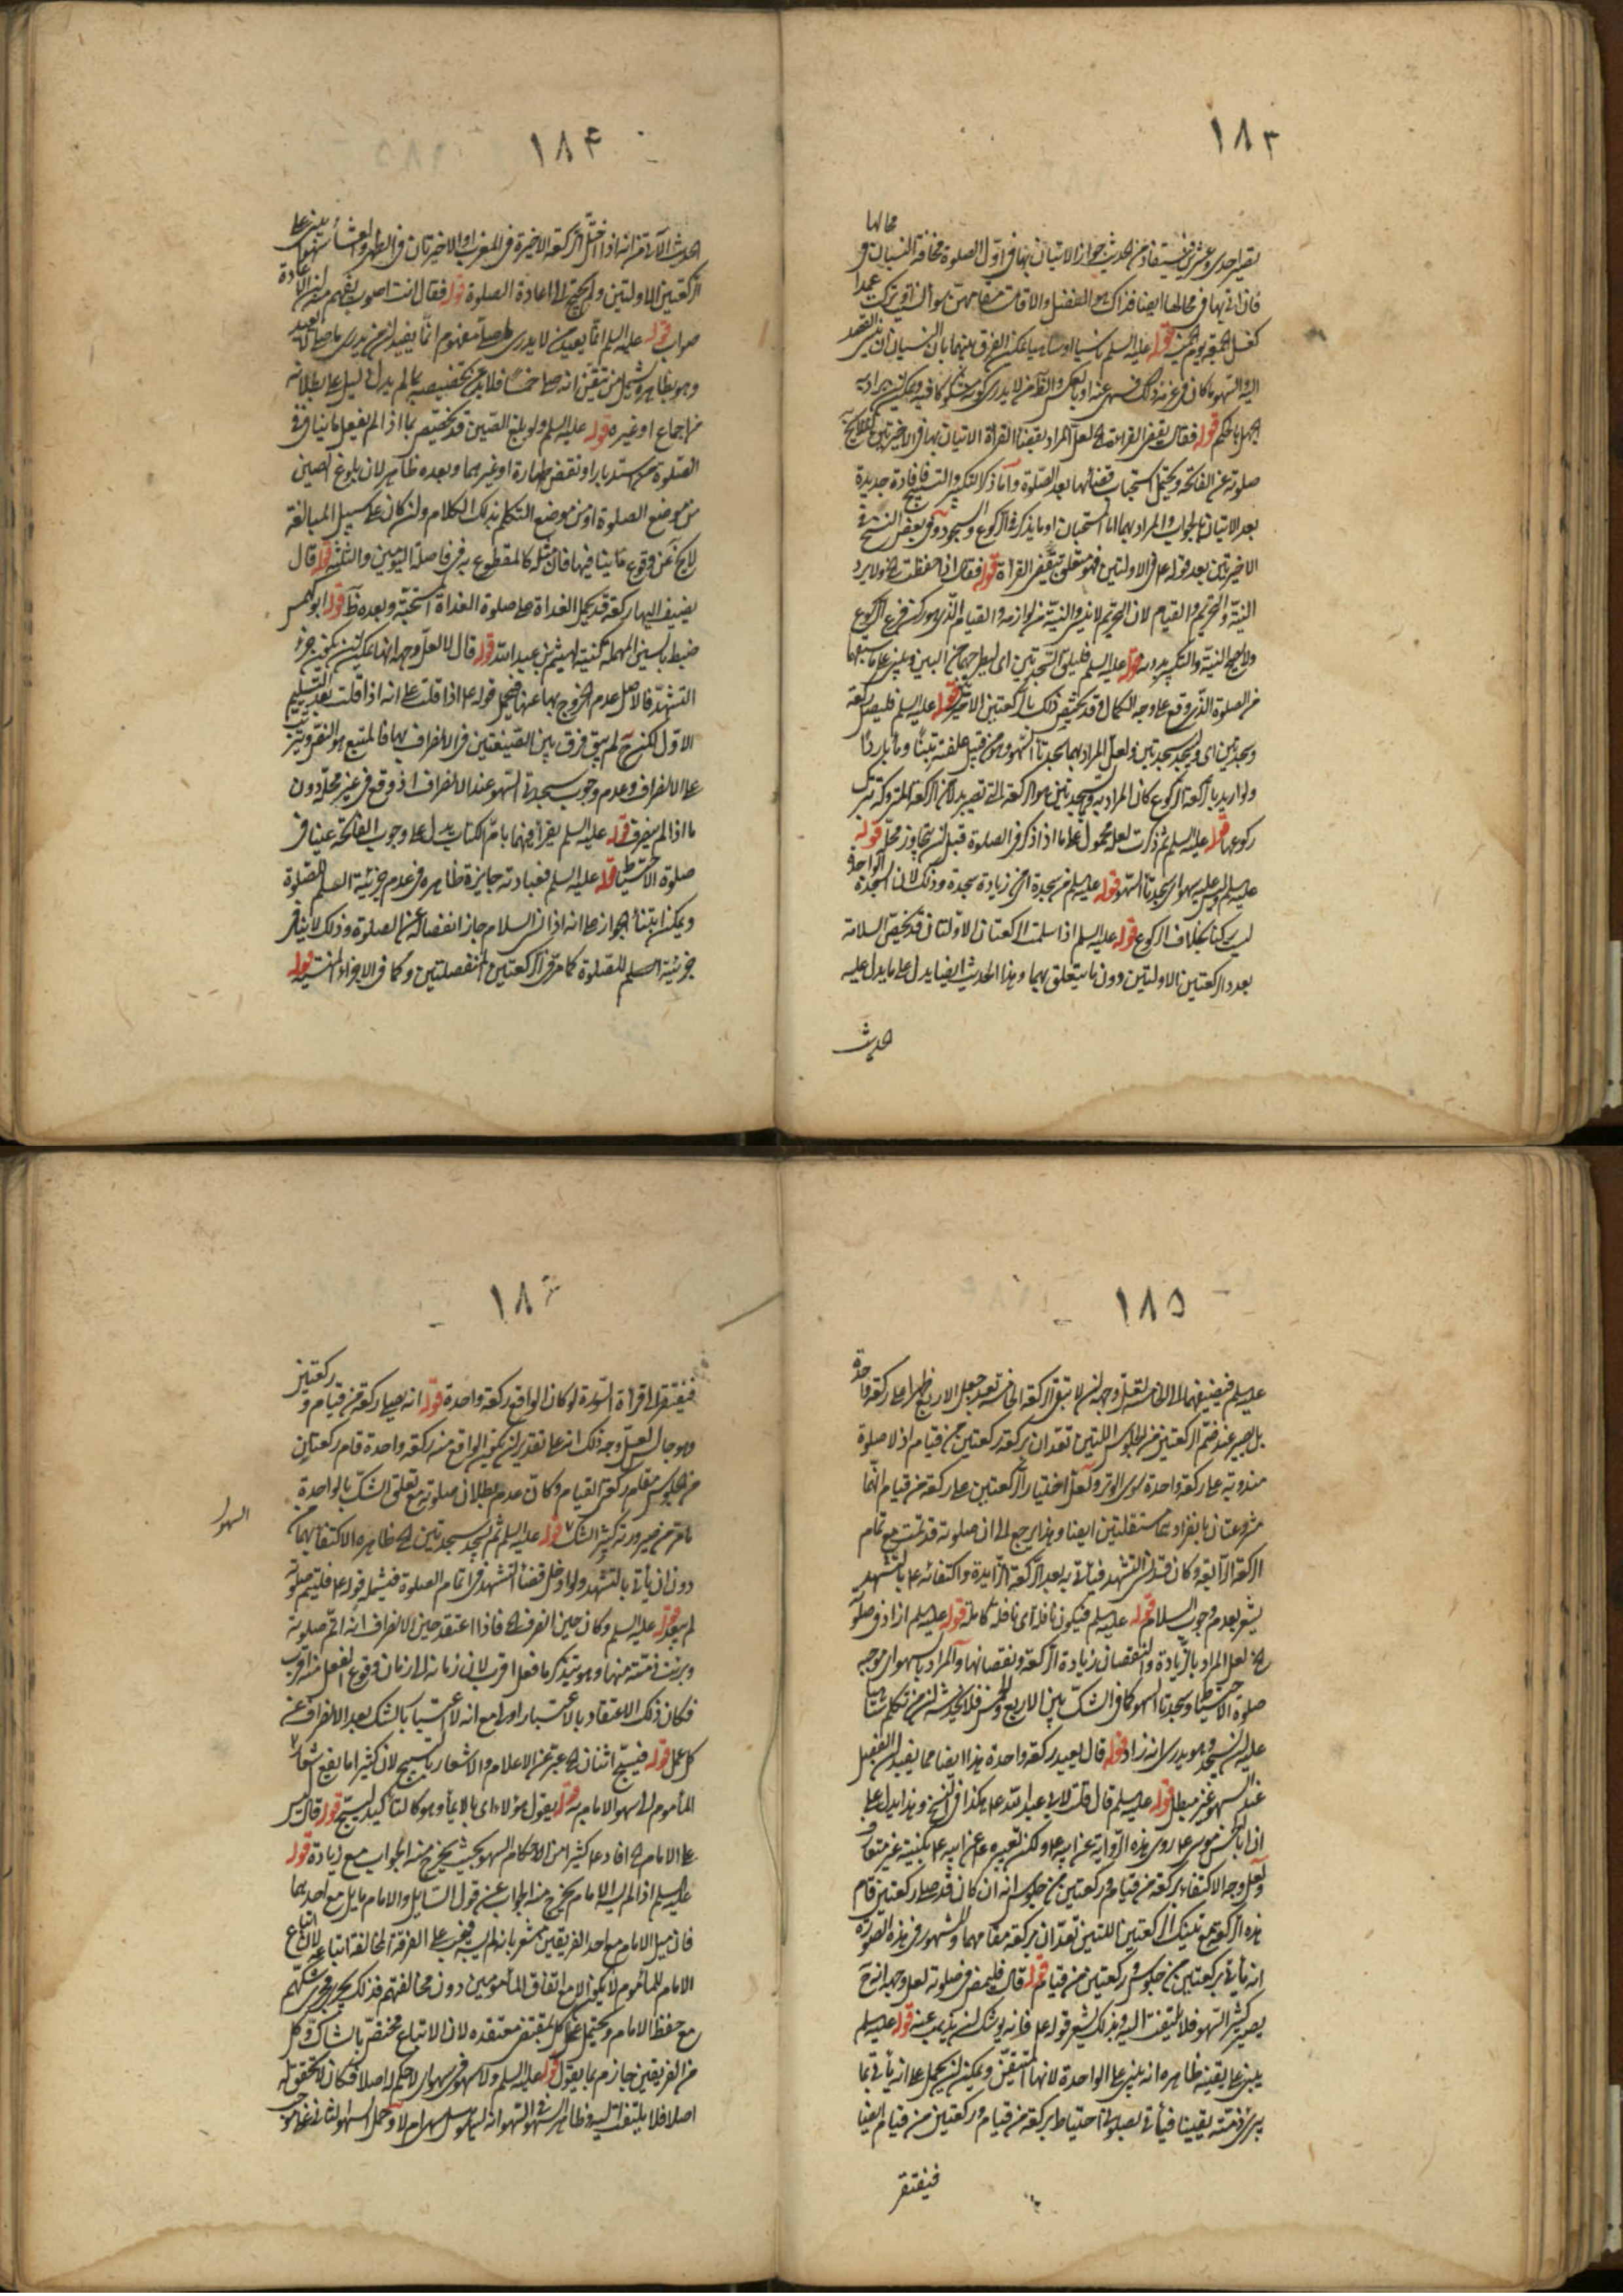 ١٨٣
محالها
بقصر احدى وعشرين فيستفاد من الحديث جواز الاتيان بها في اول الصلوة مخافة النسيان و
فان اتى بها في محالها ايضا فذاك هو الفضل والا قامت مقامهن سواء نسي او ترك عمدا
كغسل الجمعة يوم الخميس قوله عليه السلم ناسيا او ساهيا يمكن الفرق بينهما بان النسيان ان ينسى القصد
اليه والسهو ما كان في عزمه ذلك فسهى عنه او بالعكس
بالحكم قوله فقال يقضي القراءة لعل المراد بقضاء القراءة الاتيان بها في الاخيرتين
صلوته عن الفاتحة ويحتمل استحباب قضائها بعد الصلوة واما ذكر التكبير والتسبيح فافادة جديدة
بعد الاتيان بالجواب والمراد بهما اما المستحبان او ما يذكر في الركوع والسجود وفي بعض النسخ في
الاخيرتين بعد قوله ع في الاولتين فهو متعلق بيقضي القراءة قوله فقال اذا حفظت الخ ولا يرد
النية والتحريم والقيام لان التحريم لا ينسى والنية من لوازمه والقيام الذي هو ركن فرع الركوع
قوله عليه السلم فليلق السجدتين اى ليطرحهما من البين ويبني على ما سبقهما
من الصلوة الذي وقع على وجه الكمال وقد يختص ذلك بالركعتين الاخيرتين قوله عليه السلم فليصل ركعة
وسجدتين اى ويسجد سجدتين ولعل المراد بهما سجدتا السهو وهو من قبيل علفته تبنا وماء باردا
ولو اريد بالركعة الركوع كان المراد به وبسجدتين هو الركعة التي تصير بدلا من الركعة المتروكة بترك
ركوعها قوله عليه السلم ثم ذكرت لعله محمول على ما اذا ذكر في الصلوة قبل ان يتجاوز محله قوله
عليه السلم وليس عليه سهو اى سجدتا السهو قوله عليه السلم من سجدة اى من زيادة سجدة وذلك لان السجدة الواحدة
ليست ركنا بخلاف الركوع قوله عليه السلم اذا سلمت الركعتان الاولتان قد يخص السلامة
بعدد الركعتين الاولتين دون ما يتعلق بهما وهذا الحديث ايضا يدل على ما يدل عليه
الحديث
١٨۴
الحديث الآتي من انه اذا اختل الركعة الاخيرة في المغرب او الاخيرتان في الظهر والعشاء سهوا يبنى على
الركعتين الاولتين ولم يحتج الى اعادة الصلوة قوله فقال انت اصوب يفهم منه ان الاعادة
صواب قوله عليه السلم انما يعيد من لا يدري ما صلى مفهوم انما يفيد ان من يدري ما صلى لا يعيد
وهو بظاهره يشمل من تيقن انه صلى خمسا فلا بد من تخصيصه بما لم يدل دليل على بطلانه
من اجماع او غيره قوله عليه السلم ولو بلغ الصين قد يختص بما اذا لم يفعل ما ينافي
الصلوة من استدبار او نقض طهارة او غيرهما وبعده ظاهر لان بلوغ الصين
من موضع الصلوة او من موضع التكلم بذلك الكلام ولئن كان على سبيل المبالغة
لا يخ عن وقوع ما ينافيها فان مثله كالمقطوع به في فاصلة اليومين والثلثة قوله قال
يضيف اليها ركعة قد يحمل الغداة على صلوة الغداة المستحبة وبعده ظ قوله ابو كهمس
ضبط بالسين المهملة كنية الهيثم بن عبيد الله قوله قال لا لعل وجهه انهما يمكن ان يكون جزء
التشهد فالاصل عدم الخروج بهما عنها فيحمل قوله ع اذا قلت على انه اذا قلت بعد التسليم
الاول لكن ح لم يبق فرق بين الصيغتين في الانصراف بهما فالمتبع هو النص ويترتب
على الانصراف وعدم وجوب سجدتي السهو عند الانصراف اذ وقع في غير محله دون
ما اذا لم ينصرف قوله عليه السلم يقرأ فيهما بام الكتاب يدل على وجوب الفاتحة عينا في
صلوة الاحتياط قوله عليه السلم فعبادته جايزة ظاهره في عدم جزئية التسليم للصلوة
ويمكن ابتناء الجواز على انه اذا نسي السلام جاز انفصاله عن الصلوة وذلك لا ينافي
جزئية التسليم للصلوة كما مر في الركعتين المنفصلتين وكما في الاجزاء المنسية قوله
١٨٥
عليه السلم فيضيفهما الى الخامسة لعل وجهه ان لا تبقى الركعة الخامسة بعد جعل الاربع ظهرا على ركعة واحدة
بل يصير عند ضم الركعتين من الجلوس اللتين تعدان بركعة ركعتين من قيام اذ لا صلوة
مندوبة على ركعة واحدة سوى الوتر ولعل اختيار الركعتين على ركعة من قيام انهما
مشروعتان بانفرادهما مستقلتين ايضا وهذا يرجع الى ان صلوته قد تمت مع تمام
الركعة الرابعة وكان قد نسي التشهد فيأتي به بعد الركعة الزايدة واكتفائه ع بالتشهد
يشعر بعدم وجوب السلام قوله عليه السلم فيكون نافلة اى نافلة كاملة قوله عليه السلم ازاد في صلوته
الخ لعل المراد بالزيادة والنقصان زيادة الركعة ونقصانها والمراد بالسهو اى موجبه
صلوة الاحتياط وسجدتا السهو كما في الشك بين الاربع والخمس فلا يخدش ان من تكلم ساهيا
عليه ان يسجد وهو يدري انه زاد قوله قال يعيد ركعة واحدة هذا ايضا مما يفيد ان الفعل
عند السهو غير مبطل قوله عليه السلم قال قلت لابي عبد الله ع هكذا في النسخ وهذا يدل على
ان ابا الحسن موسى ع روى هذه الرواية عن ابيه ع ولكن تعبيره ع عن ابيه ع بكنيته غير متعارف
ولعل وجه الاكتفاء بركعة من قيام وركعتين من جلوس انه ان كان قد صلى ركعتين قام
هذه الركعة مع تينك الركعتين اللتين تعدان بركعة مقامهما والمشهور في هذه الصورة
انه يأتي بركعتين من جلوس وركعتين من قيام قوله قال فليمض في صلوته لعل وجهه انه ح
يصير كثير السهو فلا يلتفت اليه وبذلك يشعر قوله ع فانه يوشك ان يذهب عنه قوله عليه السلم
يبني على يقينه ظاهره انه يبني على الواحدة لانها المتيقن ويمكن ان يحمل على انه يأتي بما
يبرئ ذمته يقينا فيأتي بصلوتي احتياط بركعة من قيام وركعتين من قيام ايضا
فيفتقر
١٨٦
فيفتقر الى قراءة السورة لو كان الواقع ركعة واحدة قوله انه يصلى ركعة من قيام و ركعتين
وهو جالس لعل وجه ذلك انه على تقدير ان يكون الواقع منه ركعة واحدة قام ركعتان
من الجلوس مقام ركعتي القيام وكان عدم بطلان صلوته مع تعلق الشك بالواحدة
ما مر من صيرورته كثير الشك قوله عليه السلم ثم يسجد سجدتين الخ ظاهره الاكتفاء بهما من
السهو
دون ان يأتي بالتشهد ولو ادخل قضاء التشهد في اتمام الصلوة فيشمله قوله ع فليتم صلوته
لم يبعد قوله عليه السلم وكان حين انصرف الخ فاذا اعتقد حين الانصراف انه اتم صلوته
وبرئت ذمته منها وهو يتذكر ما فعل اقرب لان زمانه الى زمان وقوع الفعل منه اقرب
فكان ذلك الاعتقاد بالاعتبار اولى مع انه لا اعتبار بالشك بعد الانصراف عن
كل عمل قوله فيسبح اثنان الخ عبر عن الاعلام والاشعار بالتسبيح لان كثيرا ما يقع اشعار
المأموم الى سهو الامام به قوله يقول هؤلاء اى بالايماء وهو كالتأكيد ليسبح قوله قال ليس
على الامام الخ افاد ع كثيرا من احكام السهو بحيث يخرج منه الجواب مع زيادة قوله
عليه السلم اذا لم يسه الامام يخرج منه الجواب عن قول السايل والامام مايل مع احدهما
فان ميل الامام مع احد الفريقين مشعر بانه لم يسه فيجب على الفرقة المخالفة اتباعه لان اتباع
الامام للمأموم لا يكون الا مع اتفاق المأمومين دون مخالفتهم فذلك يجري مجرى شكهم
مع حفظ الامام ويحتمل عمل كل بمقتضى معتقده لان الاتباع مختص بالشاك وكل
من الفريقين جازم بما يقول قوله عليه السلم ولا سهو في سهو اى لا حكم له اصلا فكان لا تحقق له
اصلا فلا يلتفت اليه وظاهر